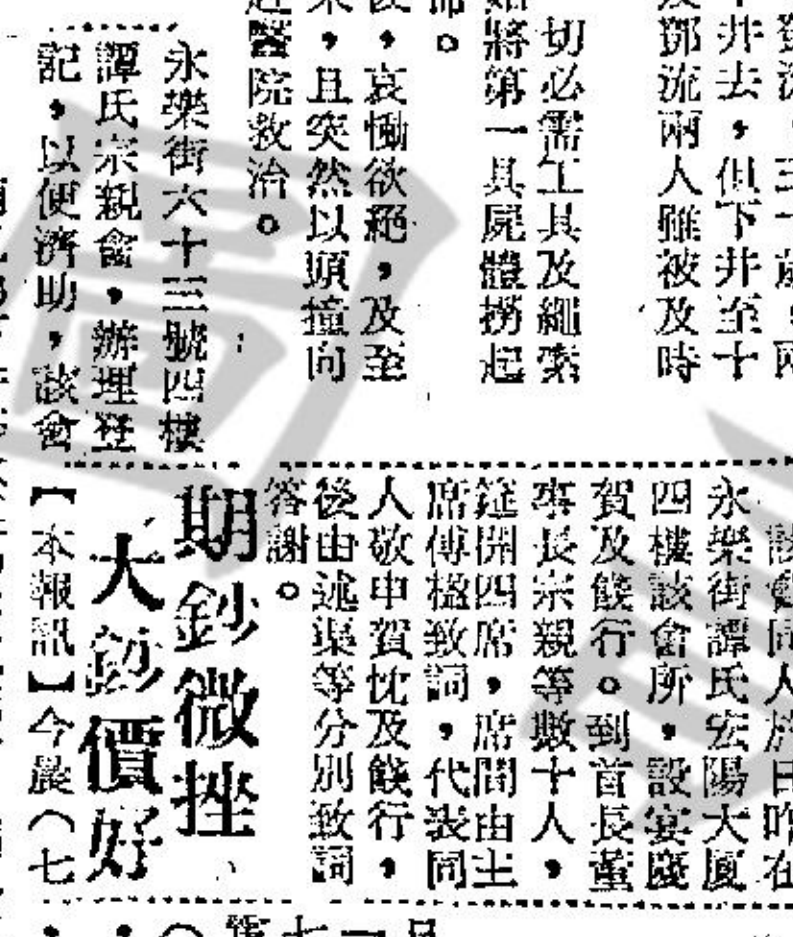 井去，但下井至十
鄧流兩人雖被及時
切必需工具及繩索
將第一具屍體撈起
，哀慟欲絕，及至
，且突然以頭撞向
醫院救治。
永樂街六十三號四樓
譚氏宗親會，辦理登
記，以便濟助，該會
永樂街譚氏宏陽大厦
四樓該會所，設宴慶
賀及餞行。到首長董
事長宗親等數十人，
筵開四席，席間由主
席傅榏致詞，代表同
人敬申賀忱及餞行，
後由述渠等分別致詞
答謝。
期鈔微挫
大鈔價好
【本報訊】今晨（七